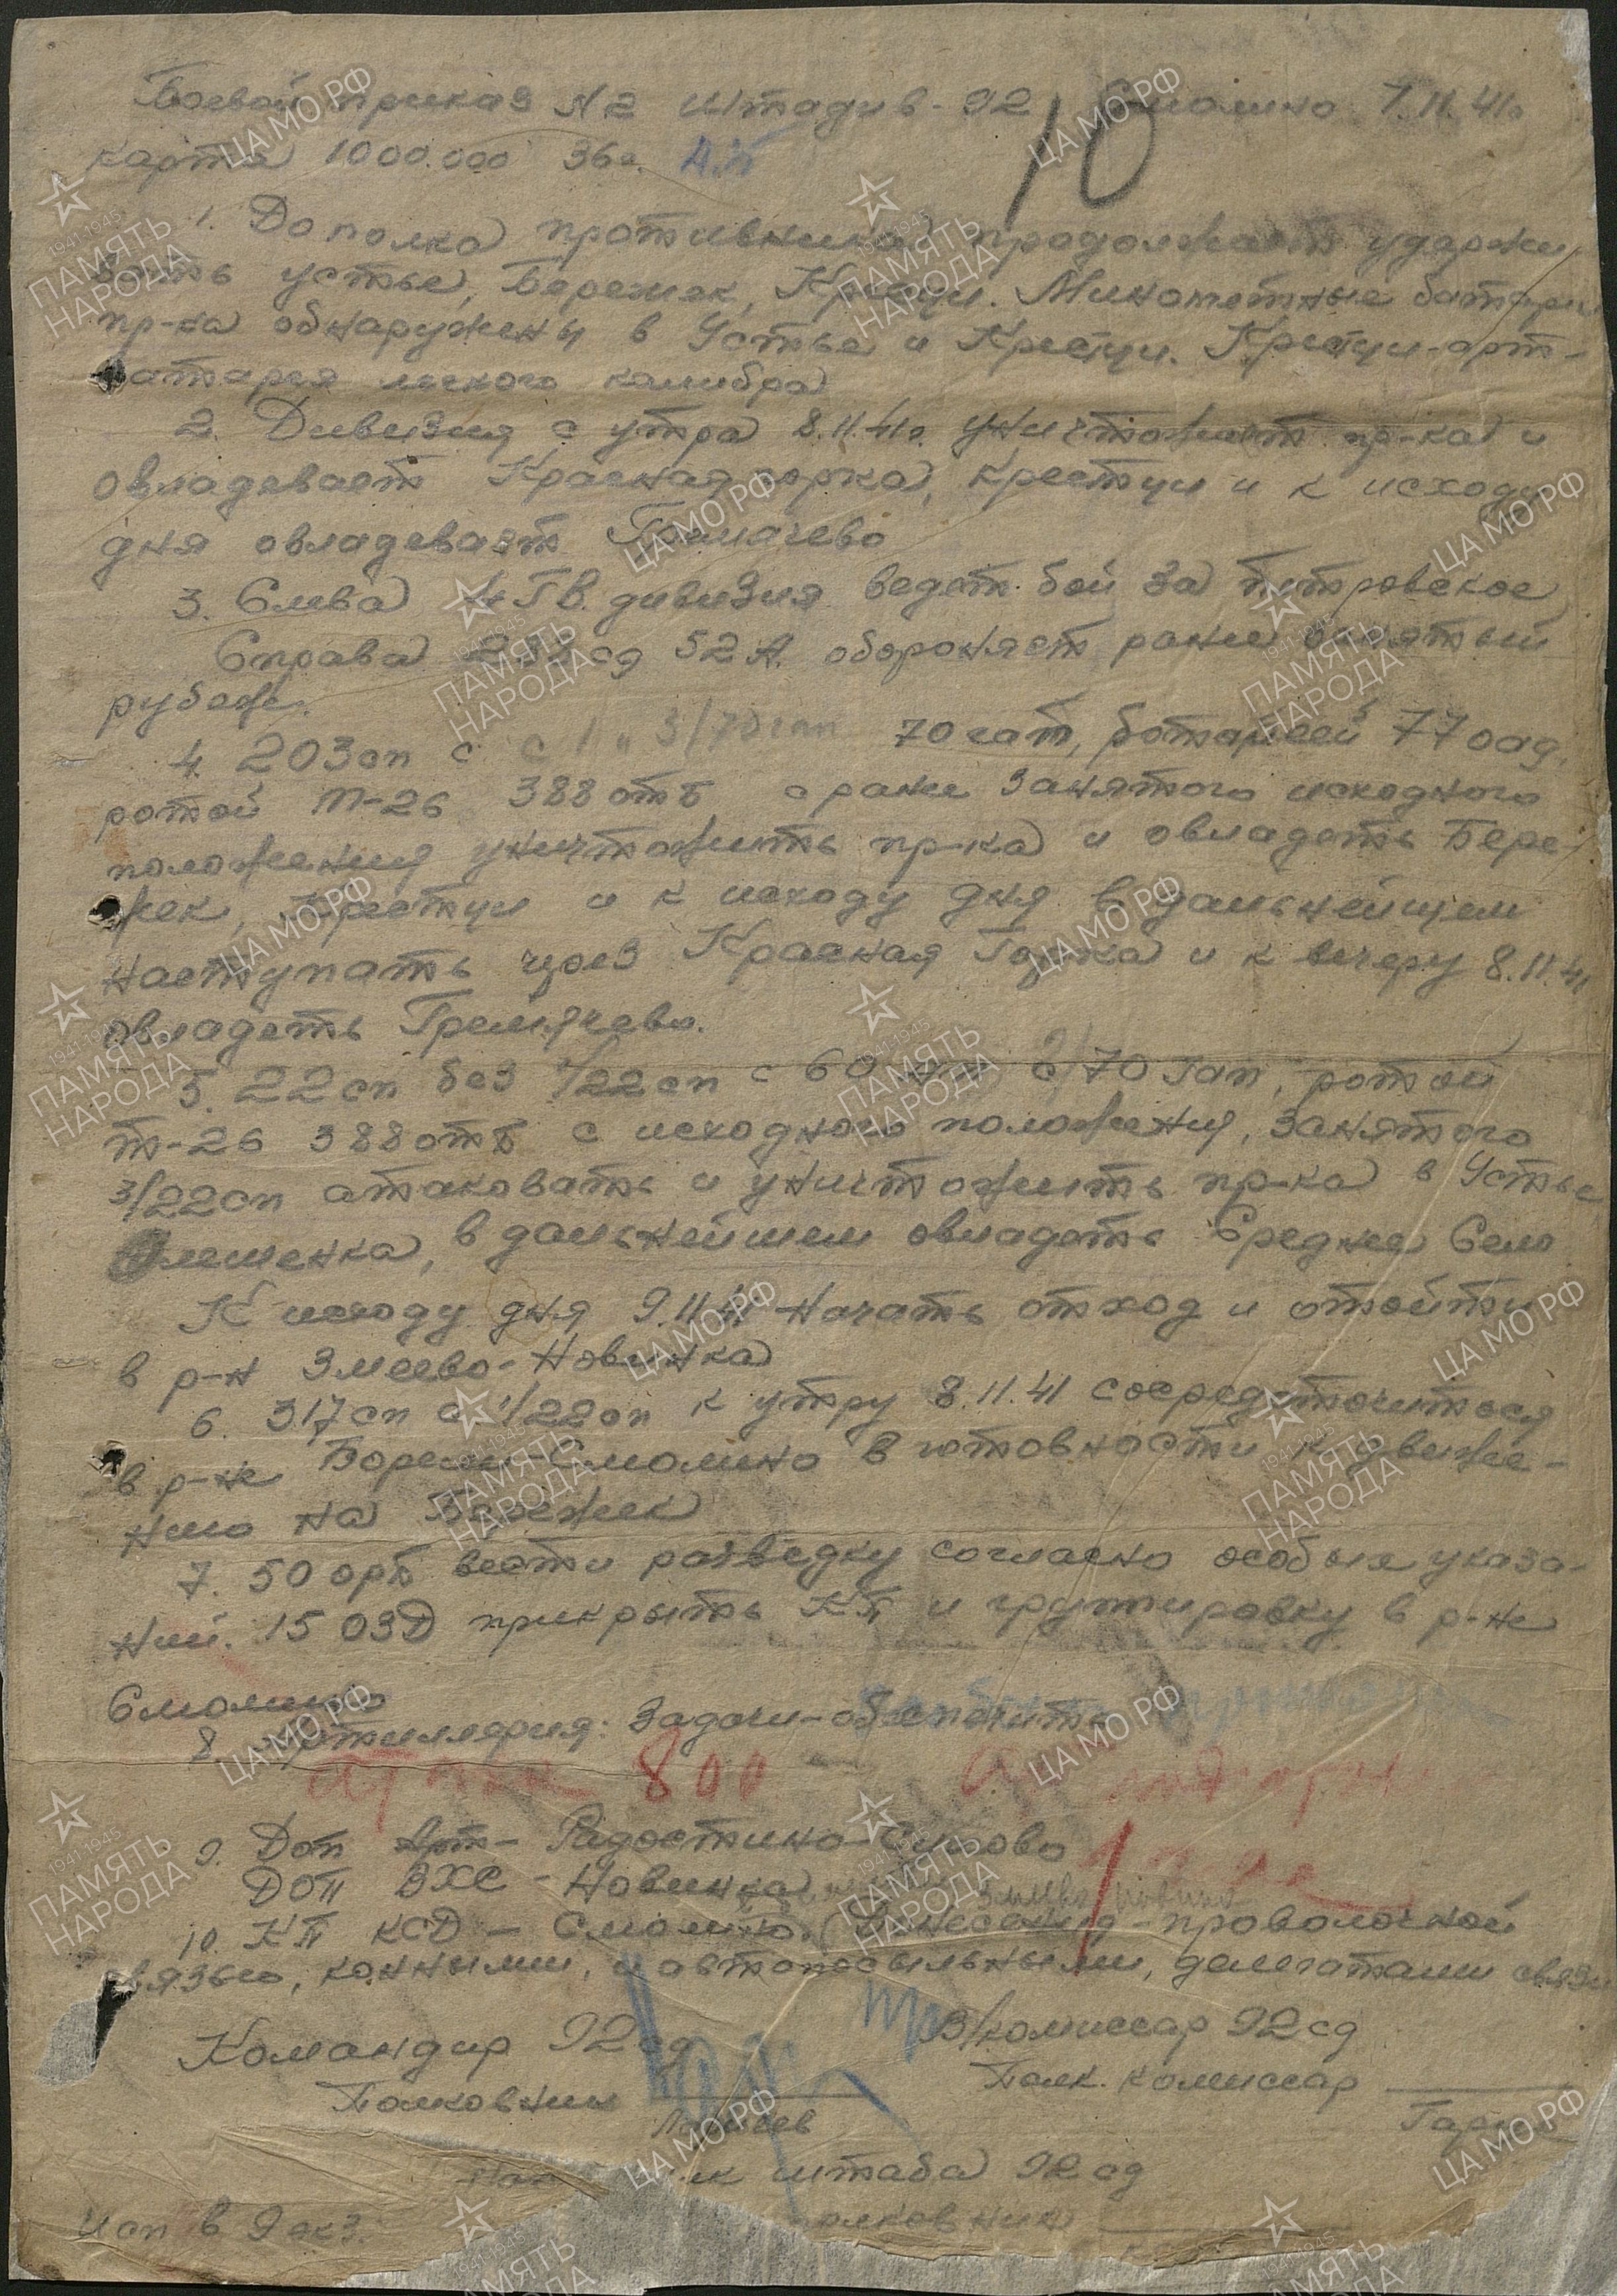 Боевой приказ N2 Штадив-92 Смолино 7.11.41г
карта 1000.000 36г.
10
1. До полка противника продолжает удержи
вать устье, Бережек, Крестци. Минометные батареи
пр-ка обнаружены в Устье и Крестци. Крестци-арт-
батарея легкого калибра
2. Дивизия с утра 8.11.41г. уничтожает пр-ка и
овладевает Красная горка, Крестци и к исходу
дня овладевает Гремячево
3. Слева 4 Гв. дивизия ведет бой за Петровское
Справа сд 52 А. обороняет ранее занятый
рубеж.
4. 203 сп с 70 гап, батареей 77 оад,
ротой Т-26 388 отб с ранее занятого исходного
положения уничтожить пр-ка и овладеть Бере-
жек, Крестци и к исходу дня в дальнейшем
наступать через Красная Горка и к вечеру 8.11.41
овладеть Гремячево.
5. 22 сп без 1/22 сп с 60 2/70 гап, ротой
т-26 388 отб с исходного положения, занятого
3/22 сп атаковать и уничтожить пр-ка в Устье
в дальнейшем овладеть Среднее Село
К исходу дня 9.11.41 начать отход и отойти
в р-н Змеево-Новинка
6. 317 сп с 1/22 сп к утру 8.11.41 сосредоточиться
в р-не Смолино в готовности к движе-
нию на Бережек
7. 50 орб вести разведку согласно особые указа-
ний. 15 ОЗД прикрыть КП и группировку в р-не
Смолино
8. Артиллерия: Задачи - обеспечить
800
9. Доп Арт-
ДОП ВХС - Новинка
10. КП КСД - Смолино. Донесения - проволочной
связью, конными, и автопосыльными, делегатами связи
Командир 92 сд
В/комиссар 92 сд
Полковник
Полк. комиссар
штаба 92 сд
полковник
исп в 2 экз.
ЦА МО РФ
1941-1945
ПАМЯТЬ
НАРОДА